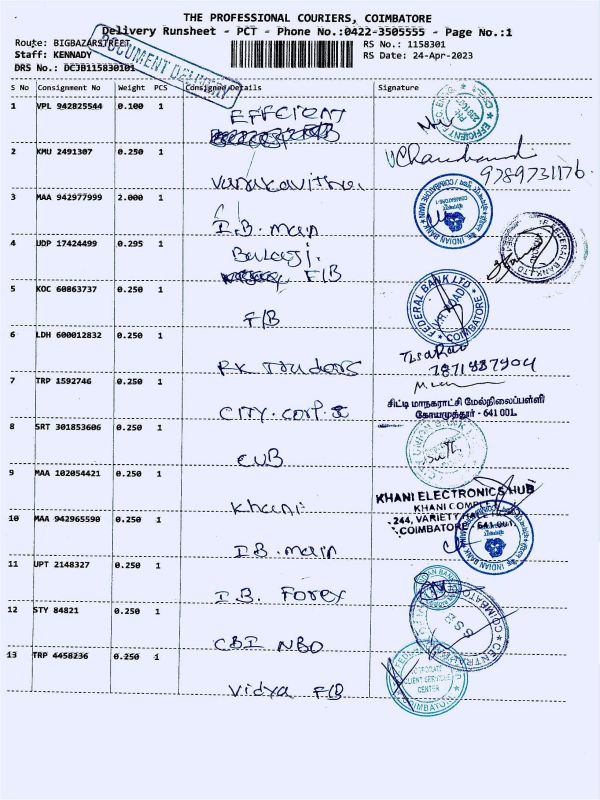 THE PROFESSIONAL COURIERS, COIMBATORE
Delivery Runsheet - PCT - Phone No.:0422-3505555 - Page No.:1
Route: BIGBAZARSTREET
RS No.: 1158301
Staff: KENNADY
RS Date: 24-Apr-2023
DRS No.: DCJB115830101
DOCUMENT DELIVERY
S No Consignment No Weight PCS Consigned Details Signature
1 VPL 942825544 0.100 1 EFFCIENT
2 KMU 2491307 0.250 1 Vanakavitha
9789731176.
3 MAA 942977999 2.000 1 I.B. main
4 UDP 17424499 0.295 1 Balaji.
F/B
5 KOC 60863737 0.250 1 F/B
FEDERAL BANK LTD
COIMBATORE
6 LDH 600012832 0.250 1 RK Traders
7871887904
7 TRP 1592746 0.250 1 CITY. Corp. S
சிட்டி மாநகராட்சி மேல்நிலைப்பள்ளி
கோயமுத்தூர் - 641 001.
8 SRT 301853606 0.250 1 CUB
9 MAA 102054421 0.250 1 Khani
KHANI ELECTRONICS HUB
KHANI COMPLEX
244, VARIETY HALL ROAD
COIMBATORE - 641 001.
10 MAA 942965590 0.250 1 I.B. main
INDIAN BANK
11 UPT 2148327 0.250 1 I.B. Forex
12 STY 84821 0.250 1 CBI NBO
13 TRP 4458236 0.250 1 Vidya F/B
CORPORATE
CLIENT SERVICE
CENTER
COIMBATORE